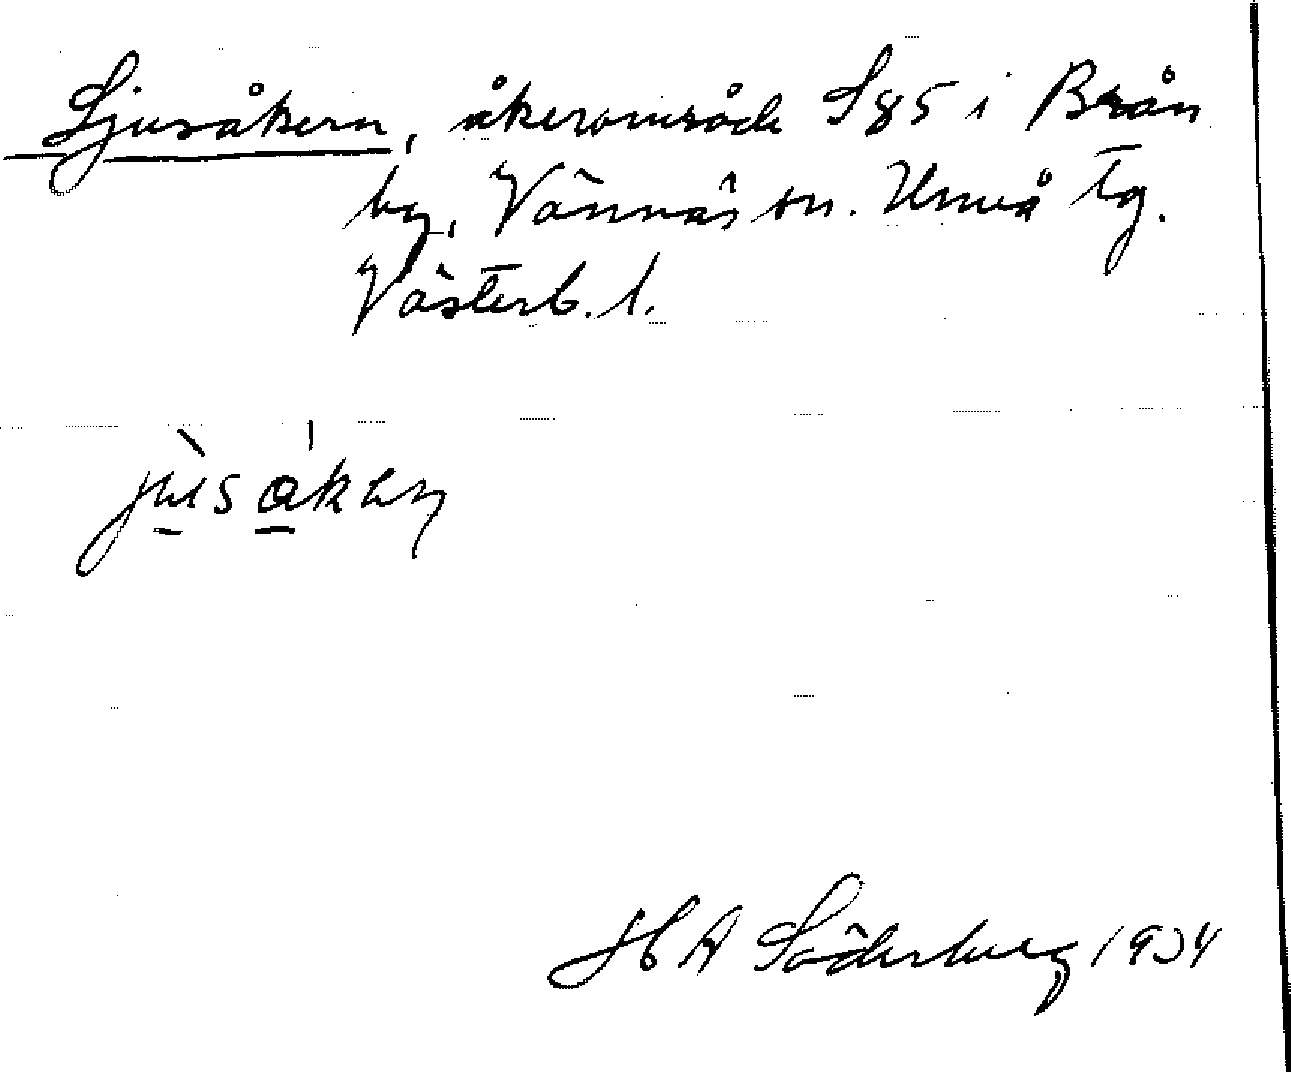 Ljusåkern, åkerområde S85 i Brån
by, Vännäs sn. Umeå tg.
Västerb. l.
H A Söderberg 1934